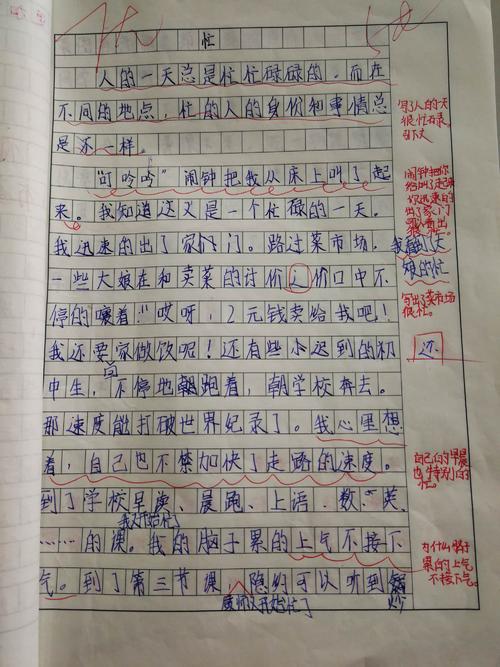 忙
人的一天总是忙忙碌碌的.而在
不同的地点,忙的人的身份和事情总
是不一样。
"叮吟吟"闹钟把我从床上叫了起
来。我知道这又是一个忙碌的一天。
我迅速的出了家门。路过菜市场,我看到了大
一些大娘在和卖菜的讨价 价口中不 娘的忙
停的嚷着:"哎呀,2元钱卖给我吧!
我还要回家做饭呢!还有些小迟到的初 还
中生,不停地朝跑着,朝学校奔去。
那速度能打破世界纪录了。我心里想
着,自己也不禁加快了走路的速度。
到了学校早读、晨跑、上语.数.英
我开始忙
……的课。我的脑子累的上气不接下
气。到了第三节课,隐约可以听到
厨师们开始忙了
炒
写了人的一天
很忙碌.
引下文
闹钟把你
给叫了起来
你迅速的
出了家门
写出了菜市场
很忙.
自己的早晨
也特别的
忙.
为什么脑子
累的上气
不接下气.